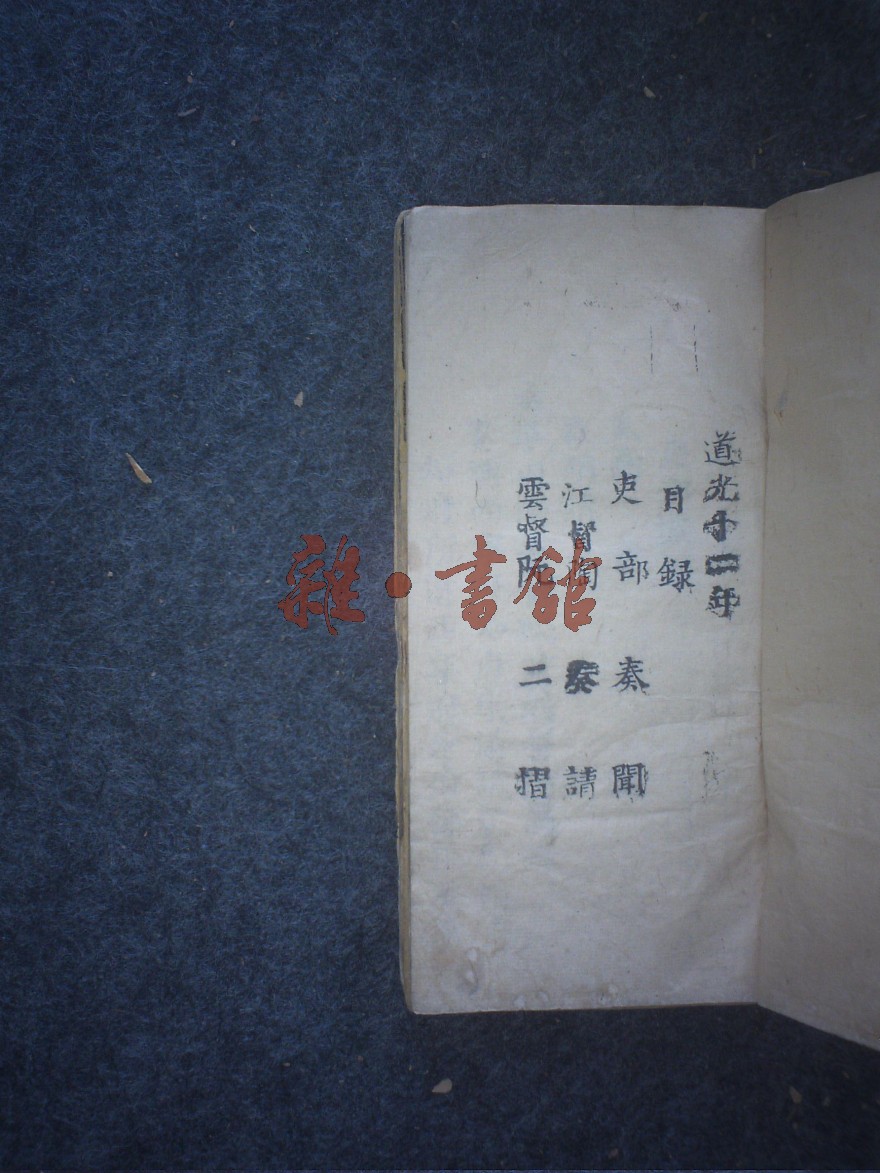 道光十二年
目録
吏部奏聞
江督陶奏請
雲督阮二摺
雜·書館